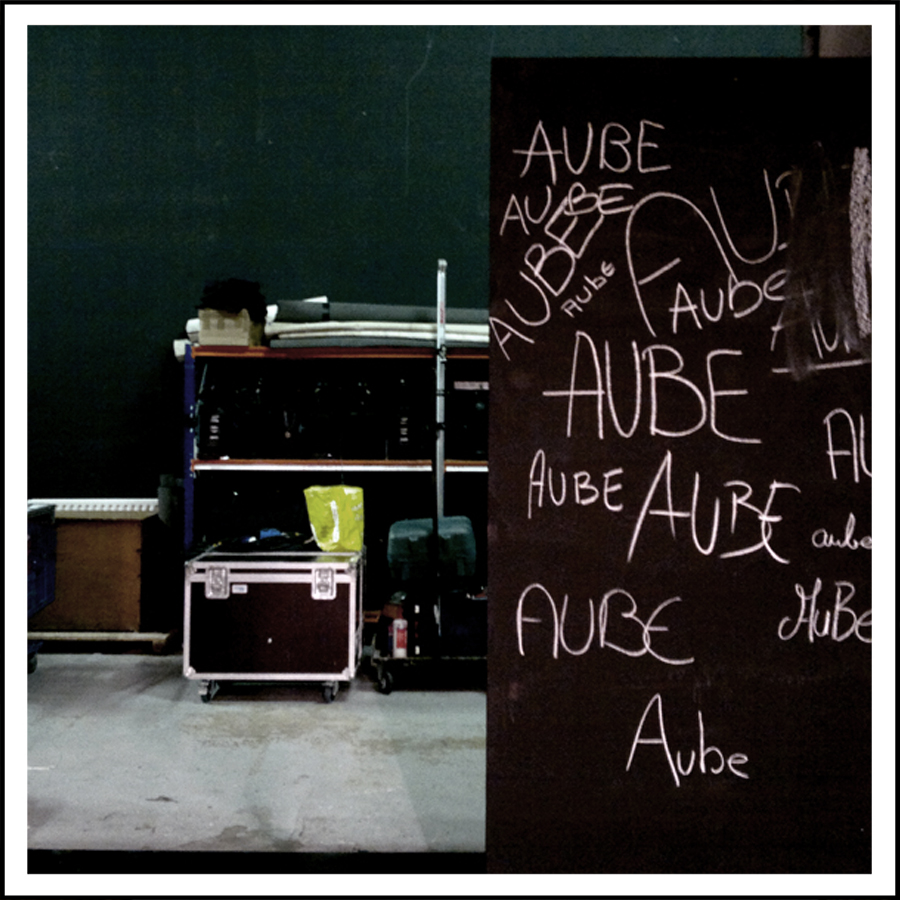 AUBE
AUBE
AUBE
Aube
AUBE
AUBE
AUBE
AUBE
aube
AUBE
AuBe
Aube